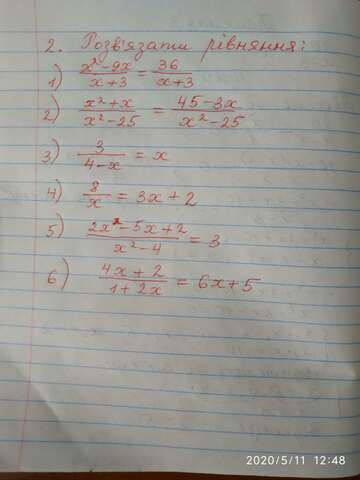 2. Розв'язати рівняння:
1) (x²-9x)/(x+3) = 36/(x+3)
2) (x²+x)/(x²-25) = (45-3x)/(x²-25)
3) 3/(4-x) = x
4) 8/x = 3x+2
5) (2x²-5x+2)/(x²-4) = 3
6) (4x+2)/(1+2x) = 6x+5
2020/5/11 12:48